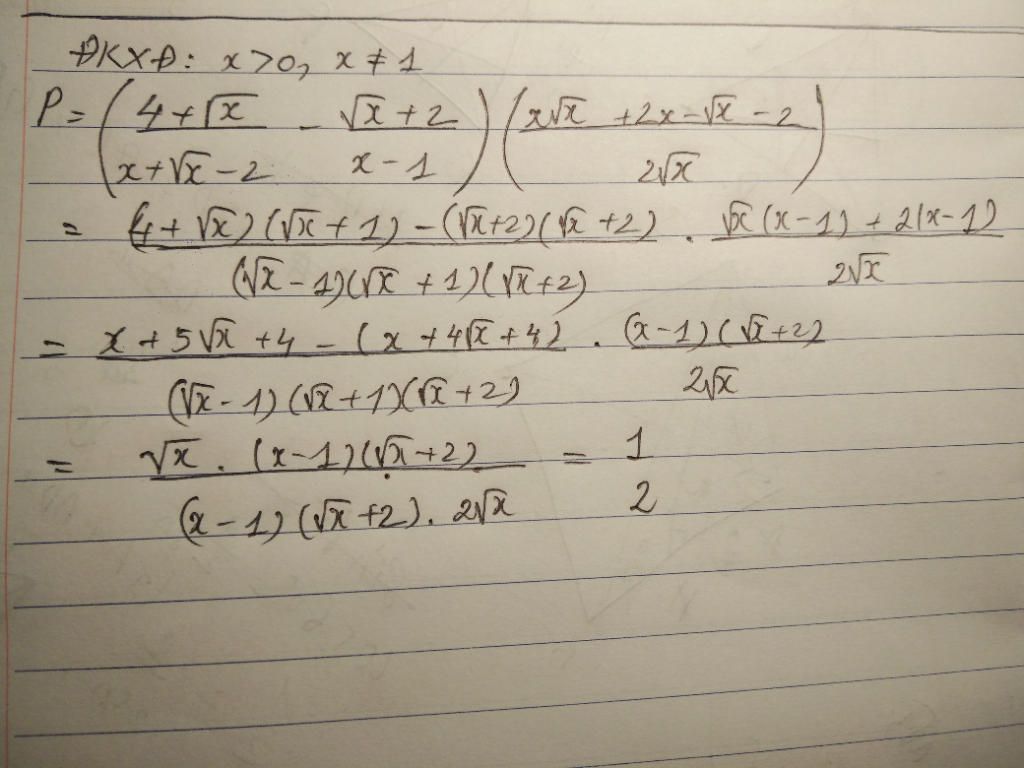 ĐKXĐ: x > 0, x ≠ 1
P = ( (4+√x)/(x+√x-2) - (√x+2)/(x-1) ) ( (x√x+2x-√x-2)/(2√x) )
= ((4+√x)(√x+1)-(√x+2)(√x+2))/((√x-1)(√x+1)(√x+2)) . (√x(x-1)+2(x-1))/(2√x)
= (x+5√x+4-(x+4√x+4))/((√x-1)(√x+1)(√x+2)) . ((x-1)(√x+2))/(2√x)
= (√x.(x-1)(√x+2))/((x-1)(√x+2).2√x) = 1/2